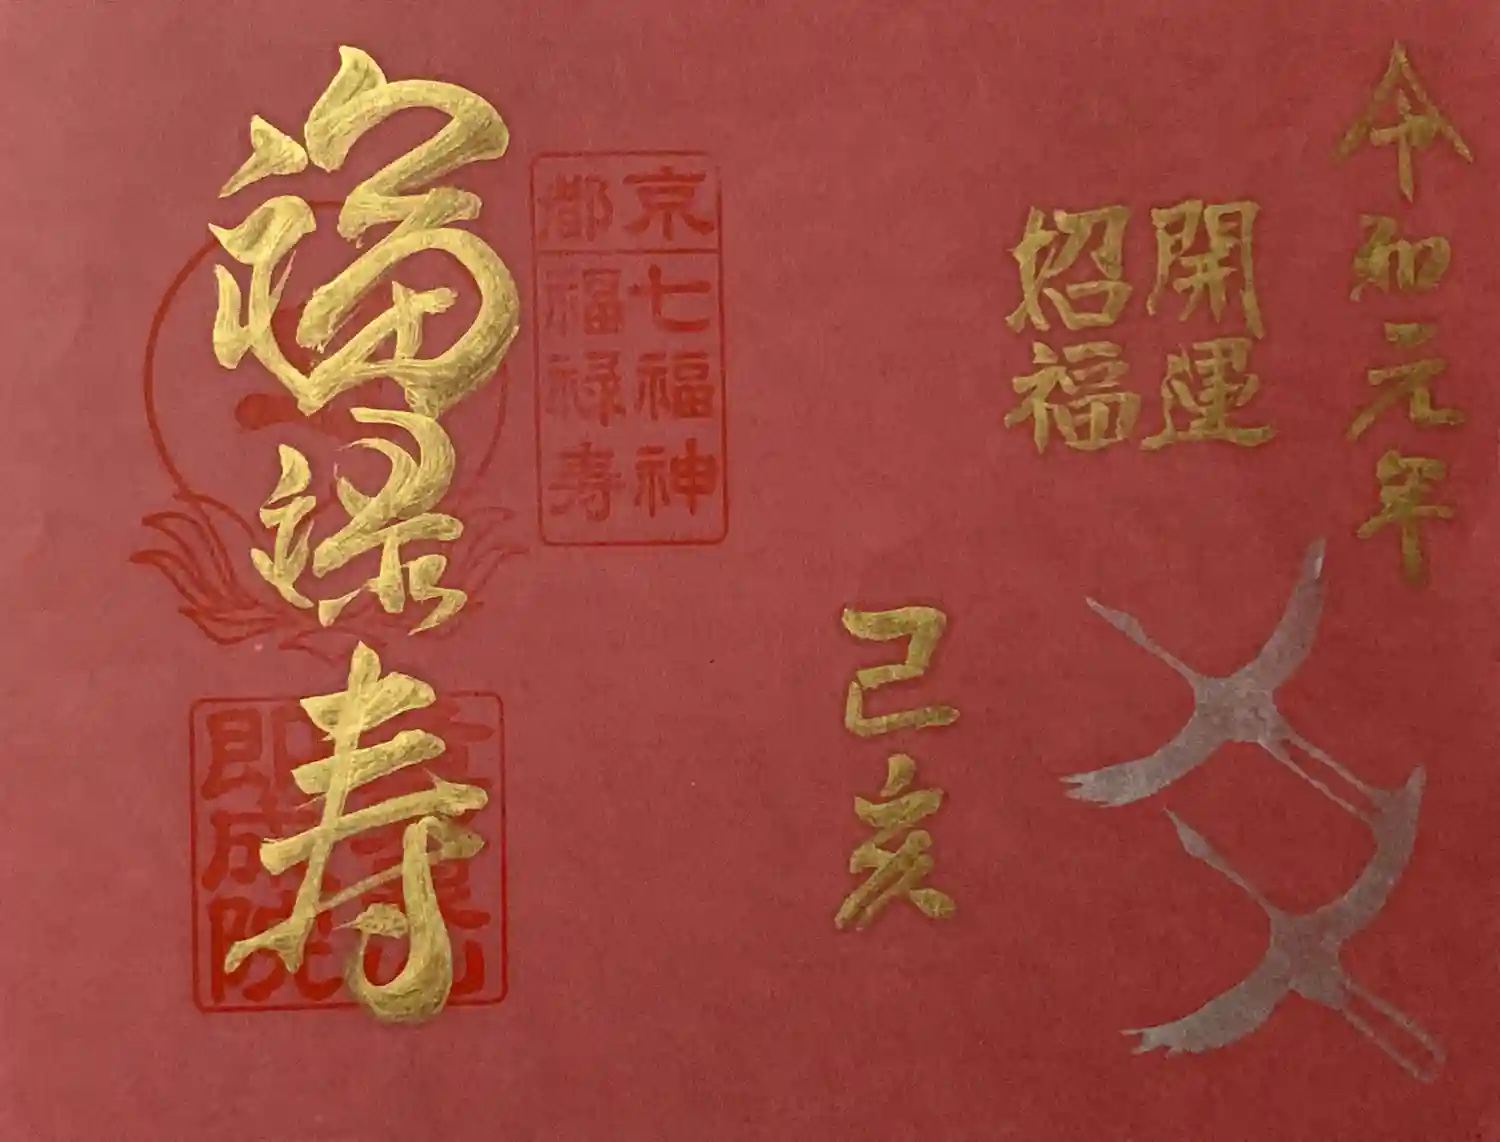 令和元年
開運
招福
己亥
京都
七福神
福禄寿
福禄寿
即成院